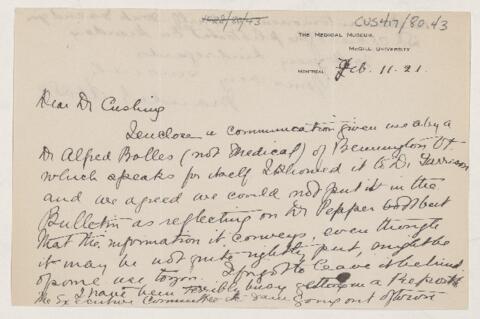 1528/80/43
CUS417/80.43
THE MEDICAL MUSEUM,
MCGILL UNIVERSITY
MONTREAL Feb. 11. 21.
Dear Dr Cushing
I enclose a communication given me by a
Dr Alfred Balles (not medical) of Bennington Vt
which speaks for itself I showed it to Dr Garrison
and we agreed we could not put it in the
Bulletin as reflecting on Dr Pepper but
that the information it conveys, even though
it may be not quite rightly put, might be
of some use to you. I forgot to leave it behind
I have been terribly busy getting in a Report to
the Executive Committee & am going out of town